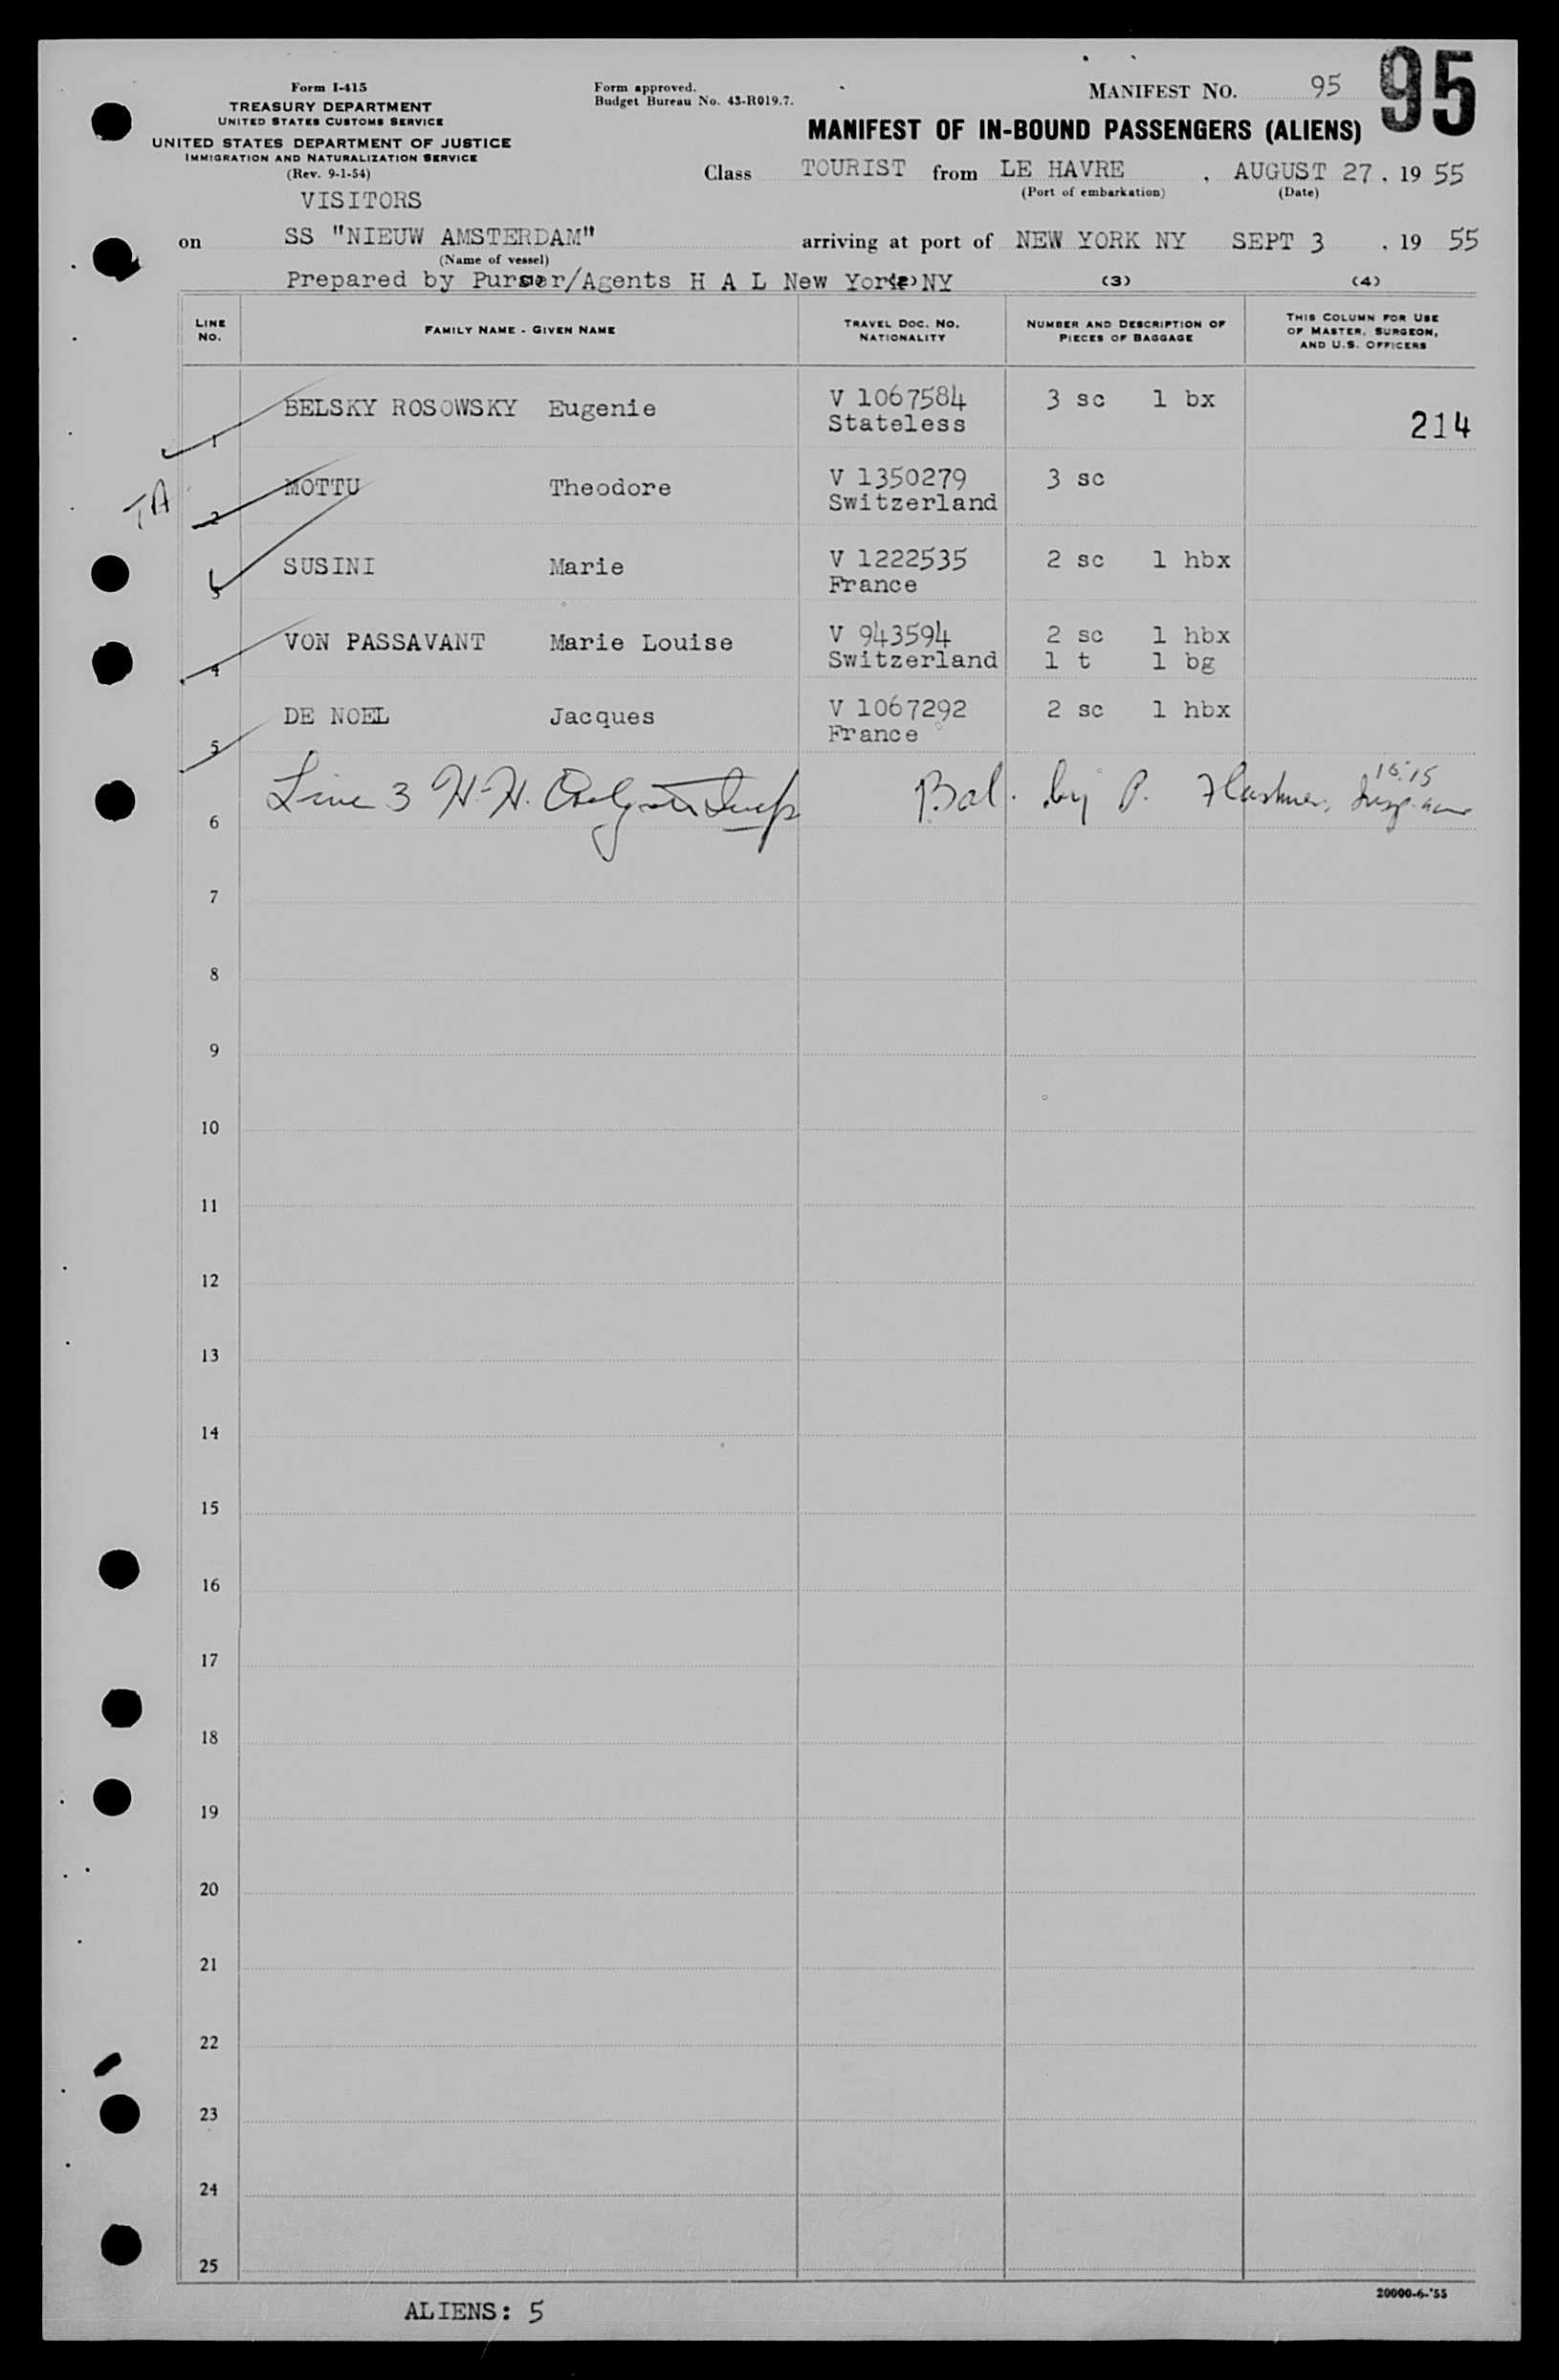 95
Form I-415
TREASURY DEPARTMENT
UNITED STATES CUSTOMS SERVICE
UNITED STATES DEPARTMENT OF JUSTICE
IMMIGRATION AND NATURALIZATION SERVICE
(Rev. 9-1-54)
Form approved.
Budget Bureau No. 43-R019.7.
MANIFEST NO. 95
MANIFEST OF IN-BOUND PASSENGERS (ALIENS)
Class TOURIST from LE HAVRE , AUGUST 27, 19 55
(Port of embarkation) (Date)
VISITORS
on SS "NIEUW AMSTERDAM" arriving at port of NEW YORK NY SEPT 3 , 19 55
(Name of vessel)
Prepared by Purser/Agents H A L New York NY (3) (4)
LINE NO. FAMILY NAME - GIVEN NAME TRAVEL DOC. NO. NATIONALITY NUMBER AND DESCRIPTION OF PIECES OF BAGGAGE THIS COLUMN FOR USE OF MASTER, SURGEON, AND U.S. OFFICERS
1 BELSKY ROSOWSKY Eugenie V 1067584 3 sc 1 bx 214
Stateless
TA
2 MOTTU Theodore V 1350279 3 sc
Switzerland
3 SUSINI Marie V 1222535 2 sc 1 hbx
France
4 VON PASSAVANT Marie Louise V 943594 2 sc 1 hbx
Switzerland 1 t 1 bg
5 DE NOEL Jacques V 1067292 2 sc 1 hbx
France
6 Line 3 H.H. Bal. by P. 1515
7
8
9
10
11
12
13
14
15
16
17
18
19
20
21
22
23
24
25
20000-6-'55
ALIENS: 5